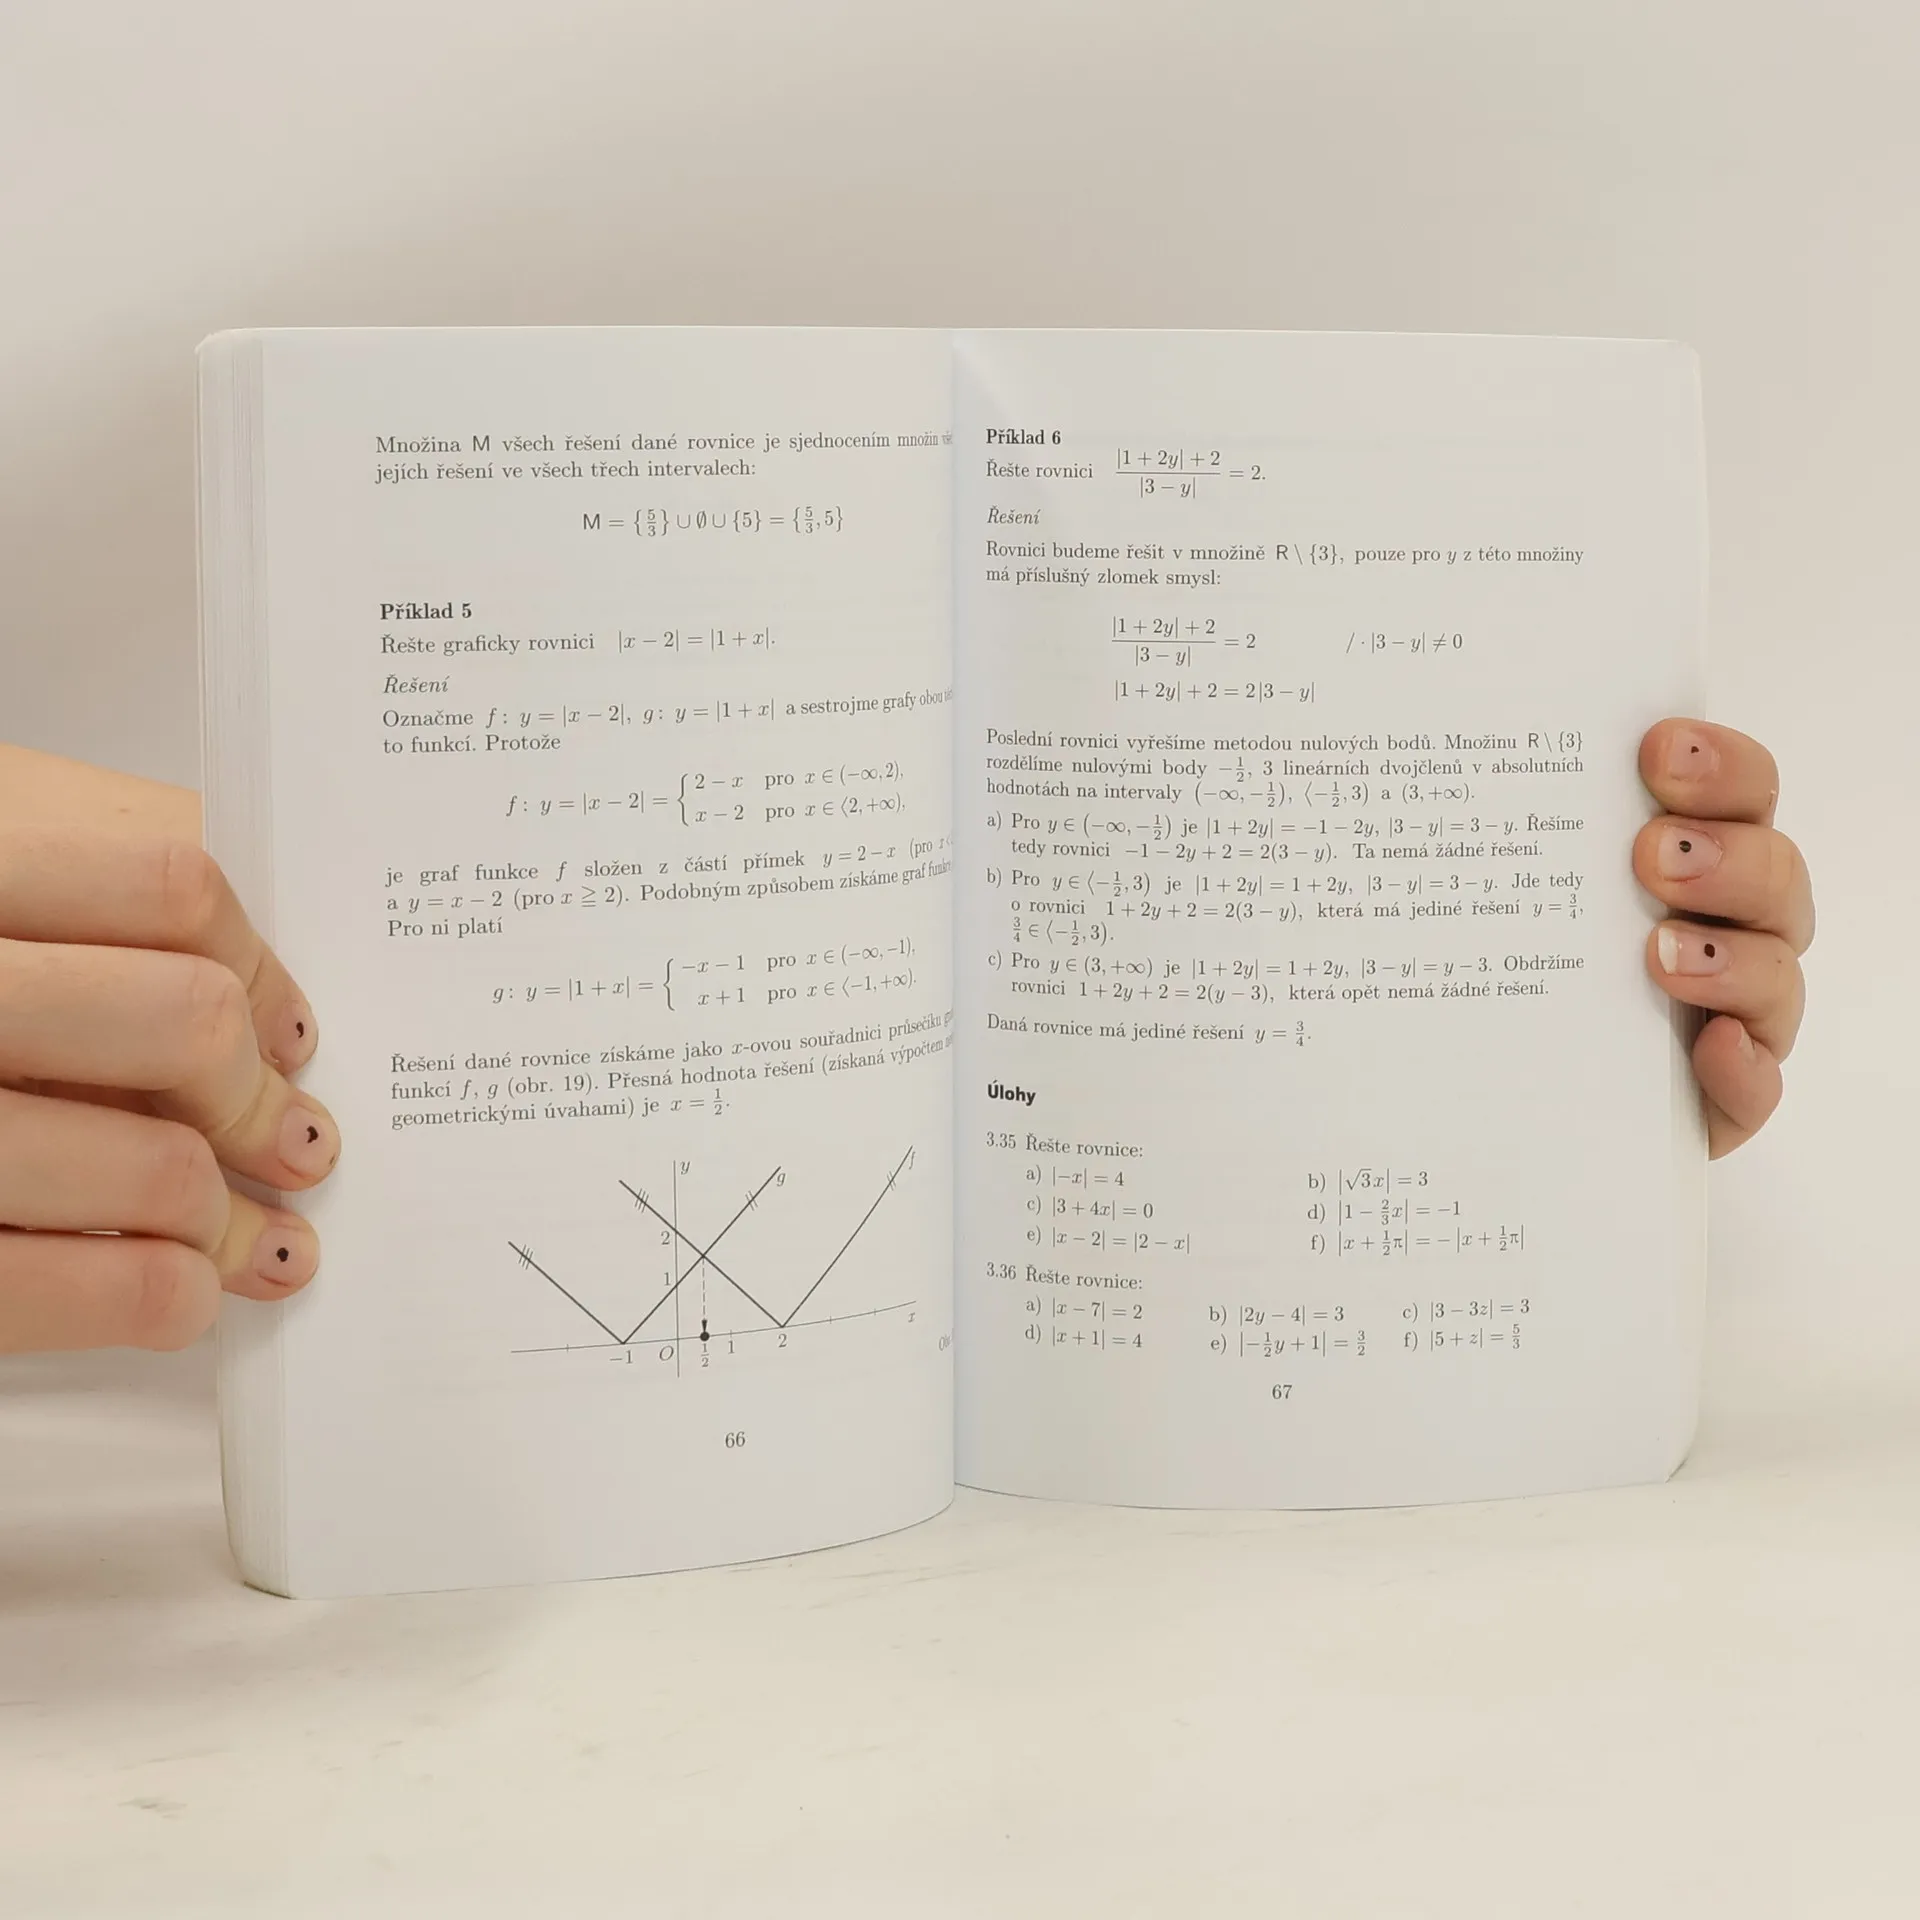 Množina M všech řešení dané rovnice je sjednocením množin
jejích řešení ve všech třech intervalech:
M = {5/3} ∪ ∅ ∪ {5} = {5/3, 5}
Příklad 5
Řešte graficky rovnici |x − 2| = |1 + x|.
Řešení
Označme f: y = |x − 2|, g: y = |1 + x| a sestrojme grafy obou
to funkcí. Protože
f: y = |x − 2| = { 2 − x pro x ∈ (−∞, 2),
x − 2 pro x ∈ ⟨2, +∞),
je graf funkce f složen z částí přímek y = 2 − x (pro
a y = x − 2 (pro x ≧ 2). Podobným způsobem získáme graf
Pro ni platí
g: y = |1 + x| = { −x − 1 pro x ∈ (−∞, −1),
x + 1 pro x ∈ ⟨−1, +∞).
Řešení dané rovnice získáme jako x-ovou souřadnici průsečíku
funkcí f, g (obr. 19). Přesná hodnota řešení (získaná výpočtem
geometrickými úvahami) je x = 1/2.
y g f
2
1
−1 O 1/2 1 2 x
66
Příklad 6
Řešte rovnici (|1 + 2y| + 2)/|3 − y| = 2.
Řešení
Rovnici budeme řešit v množině R \ {3}, pouze pro y z této množiny
má příslušný zlomek smysl:
(|1 + 2y| + 2)/|3 − y| = 2 / · |3 − y| ≠ 0
|1 + 2y| + 2 = 2|3 − y|
Poslední rovnici vyřešíme metodou nulových bodů. Množinu R \ {3}
rozdělíme nulovými body −1/2, 3 lineárních dvojčlenů v absolutních
hodnotách na intervaly (−∞, −1/2), ⟨−1/2, 3) a (3, +∞).
a) Pro y ∈ (−∞, −1/2) je |1 + 2y| = −1 − 2y, |3 − y| = 3 − y. Řešíme
tedy rovnici −1 − 2y + 2 = 2(3 − y). Ta nemá žádné řešení.
b) Pro y ∈ ⟨−1/2, 3) je |1 + 2y| = 1 + 2y, |3 − y| = 3 − y. Jde tedy
o rovnici 1 + 2y + 2 = 2(3 − y), která má jediné řešení y = 3/4,
3/4 ∈ ⟨−1/2, 3).
c) Pro y ∈ (3, +∞) je |1 + 2y| = 1 + 2y, |3 − y| = y − 3. Obdržíme
rovnici 1 + 2y + 2 = 2(y − 3), která opět nemá žádné řešení.
Daná rovnice má jediné řešení y = 3/4.
Úlohy
3.35 Řešte rovnice:
a) |−x| = 4 b) |√3x| = 3
c) |3 + 4x| = 0 d) |1 − 2/3x| = −1
e) |x − 2| = |2 − x| f) |x + 1/2π| = − |x + 1/2π|
3.36 Řešte rovnice:
a) |x − 7| = 2 b) |2y − 4| = 3 c) |3 − 3z| = 3
d) |x + 1| = 4 e) |−1/2y + 1| = 3/2 f) |5 + z| = 5/3
67